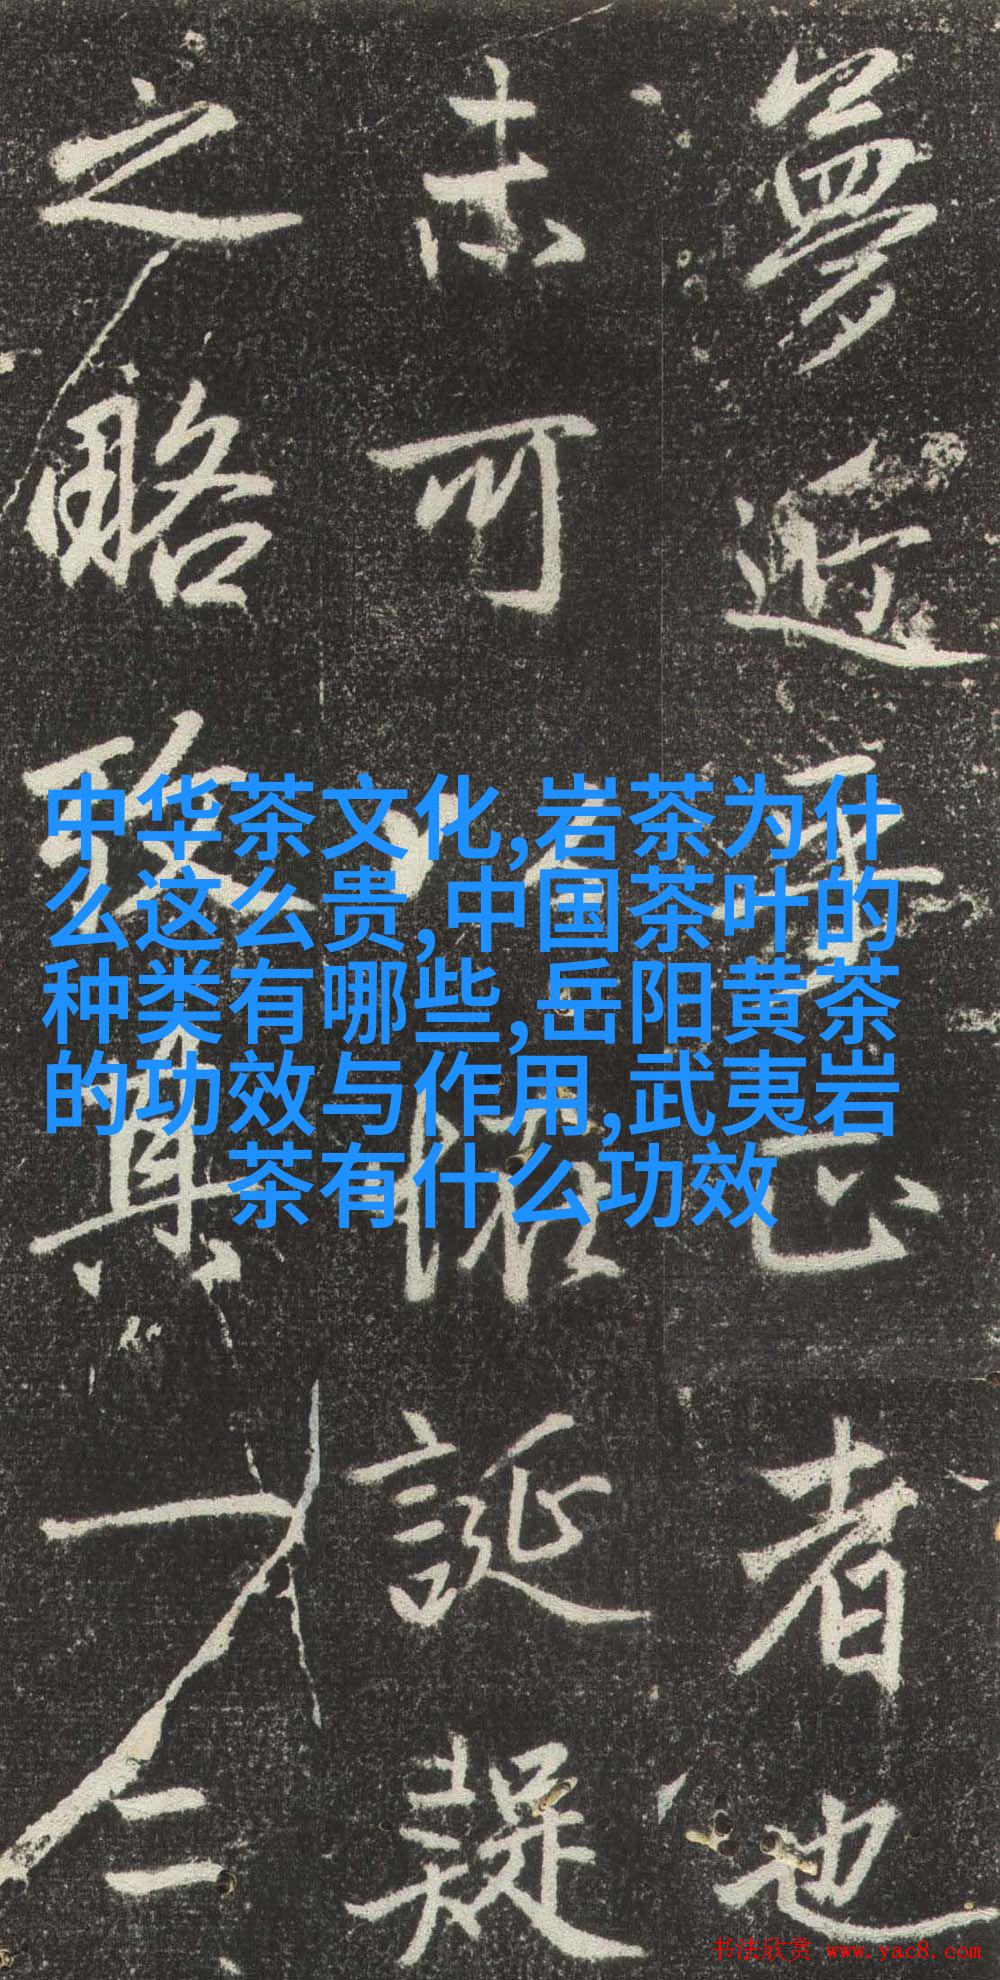 中华茶文化,岩茶为什
么这么贵,中国茶叶的
种类有哪些,岳阳黄茶
的功效与作用,武夷岩
茶有什么功效
夢近乎正者也
未可以怪誕疑
之略其一二
书法欣赏 www.yac8.com